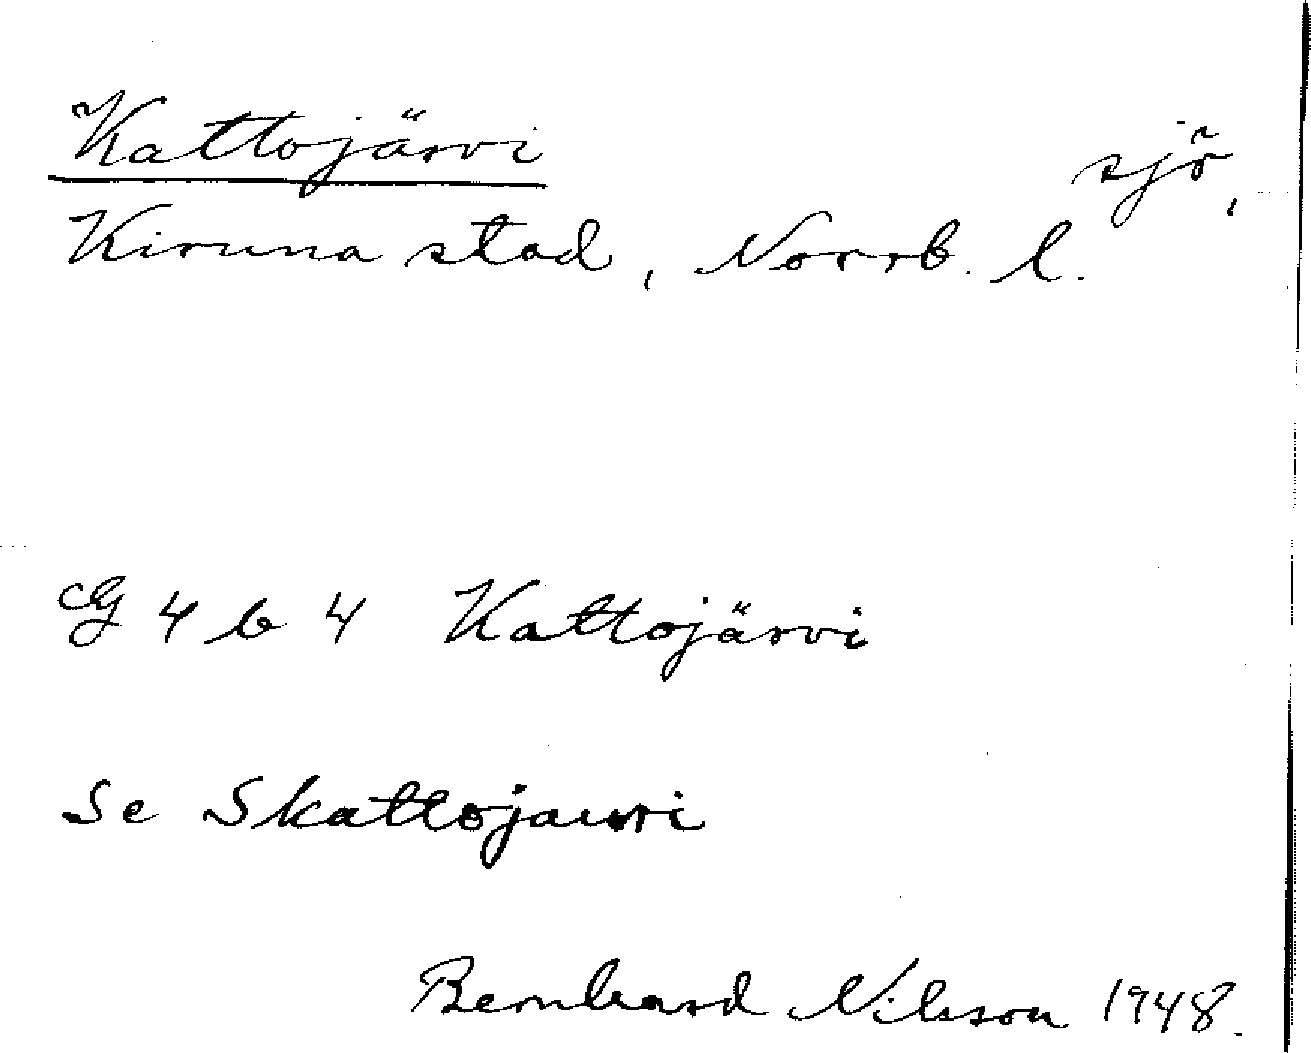 Kattojärvi sjö,
Kiruna stad, Norrb. l.
G 4 b 4 Kattojärvi
Se Skattojauri
Bernhard Nilsson 1948.